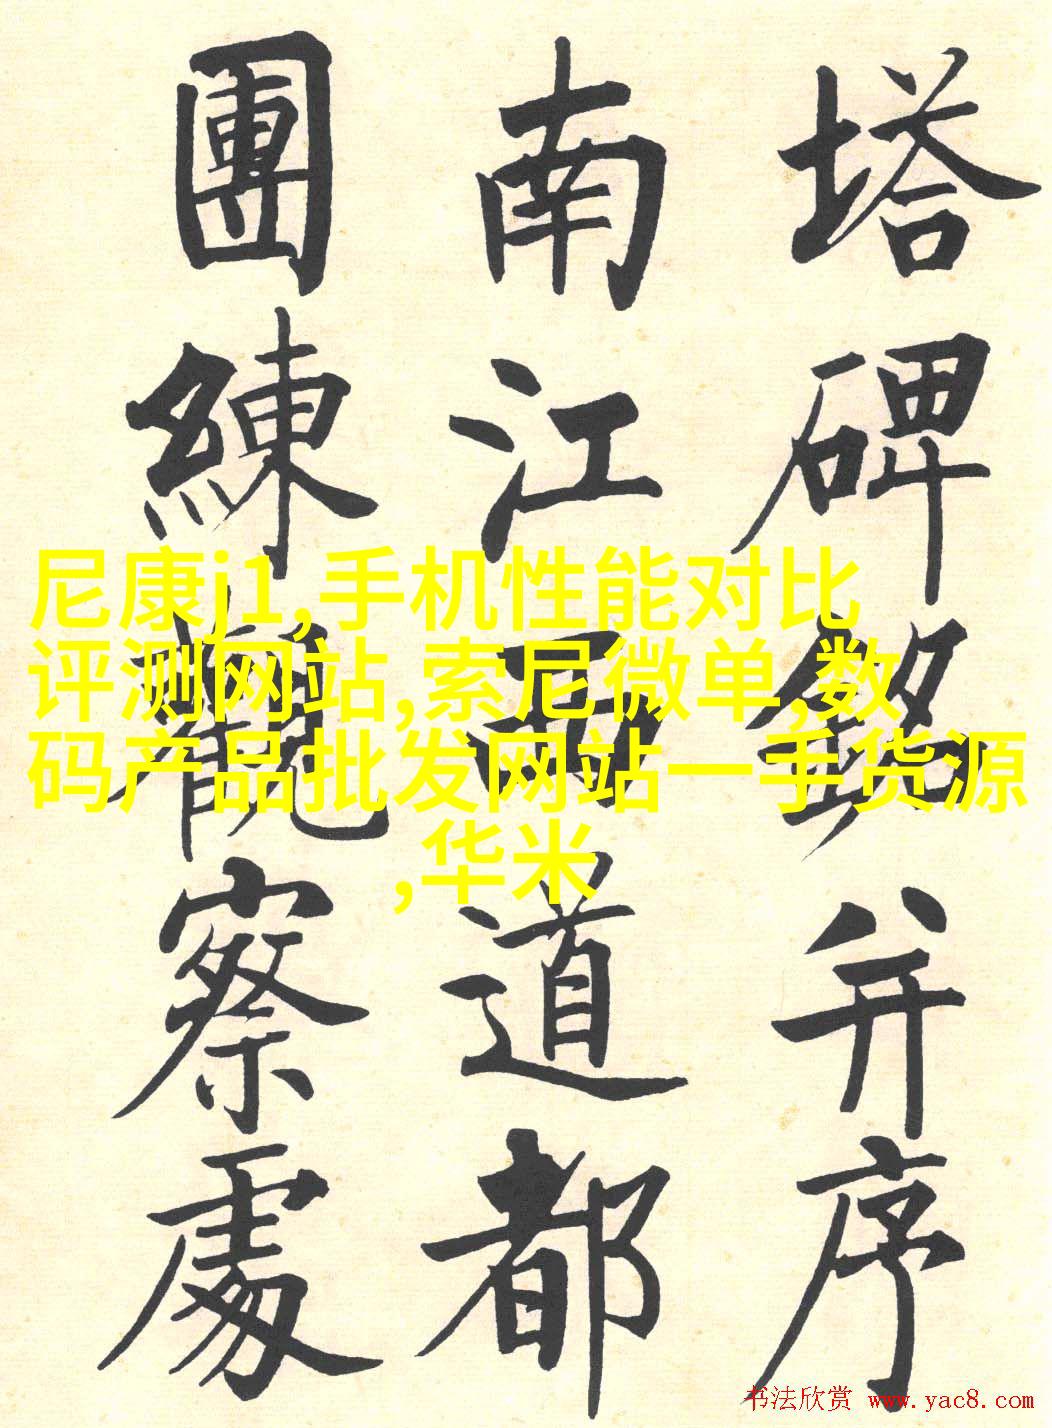 塔碑銘并序
南江西道都
團練觀察處
尼康j1,手机性能对比
评测网站,索尼微单,数
码产品批发网站一手货源
,华米
书法欣赏 www.yac8.com